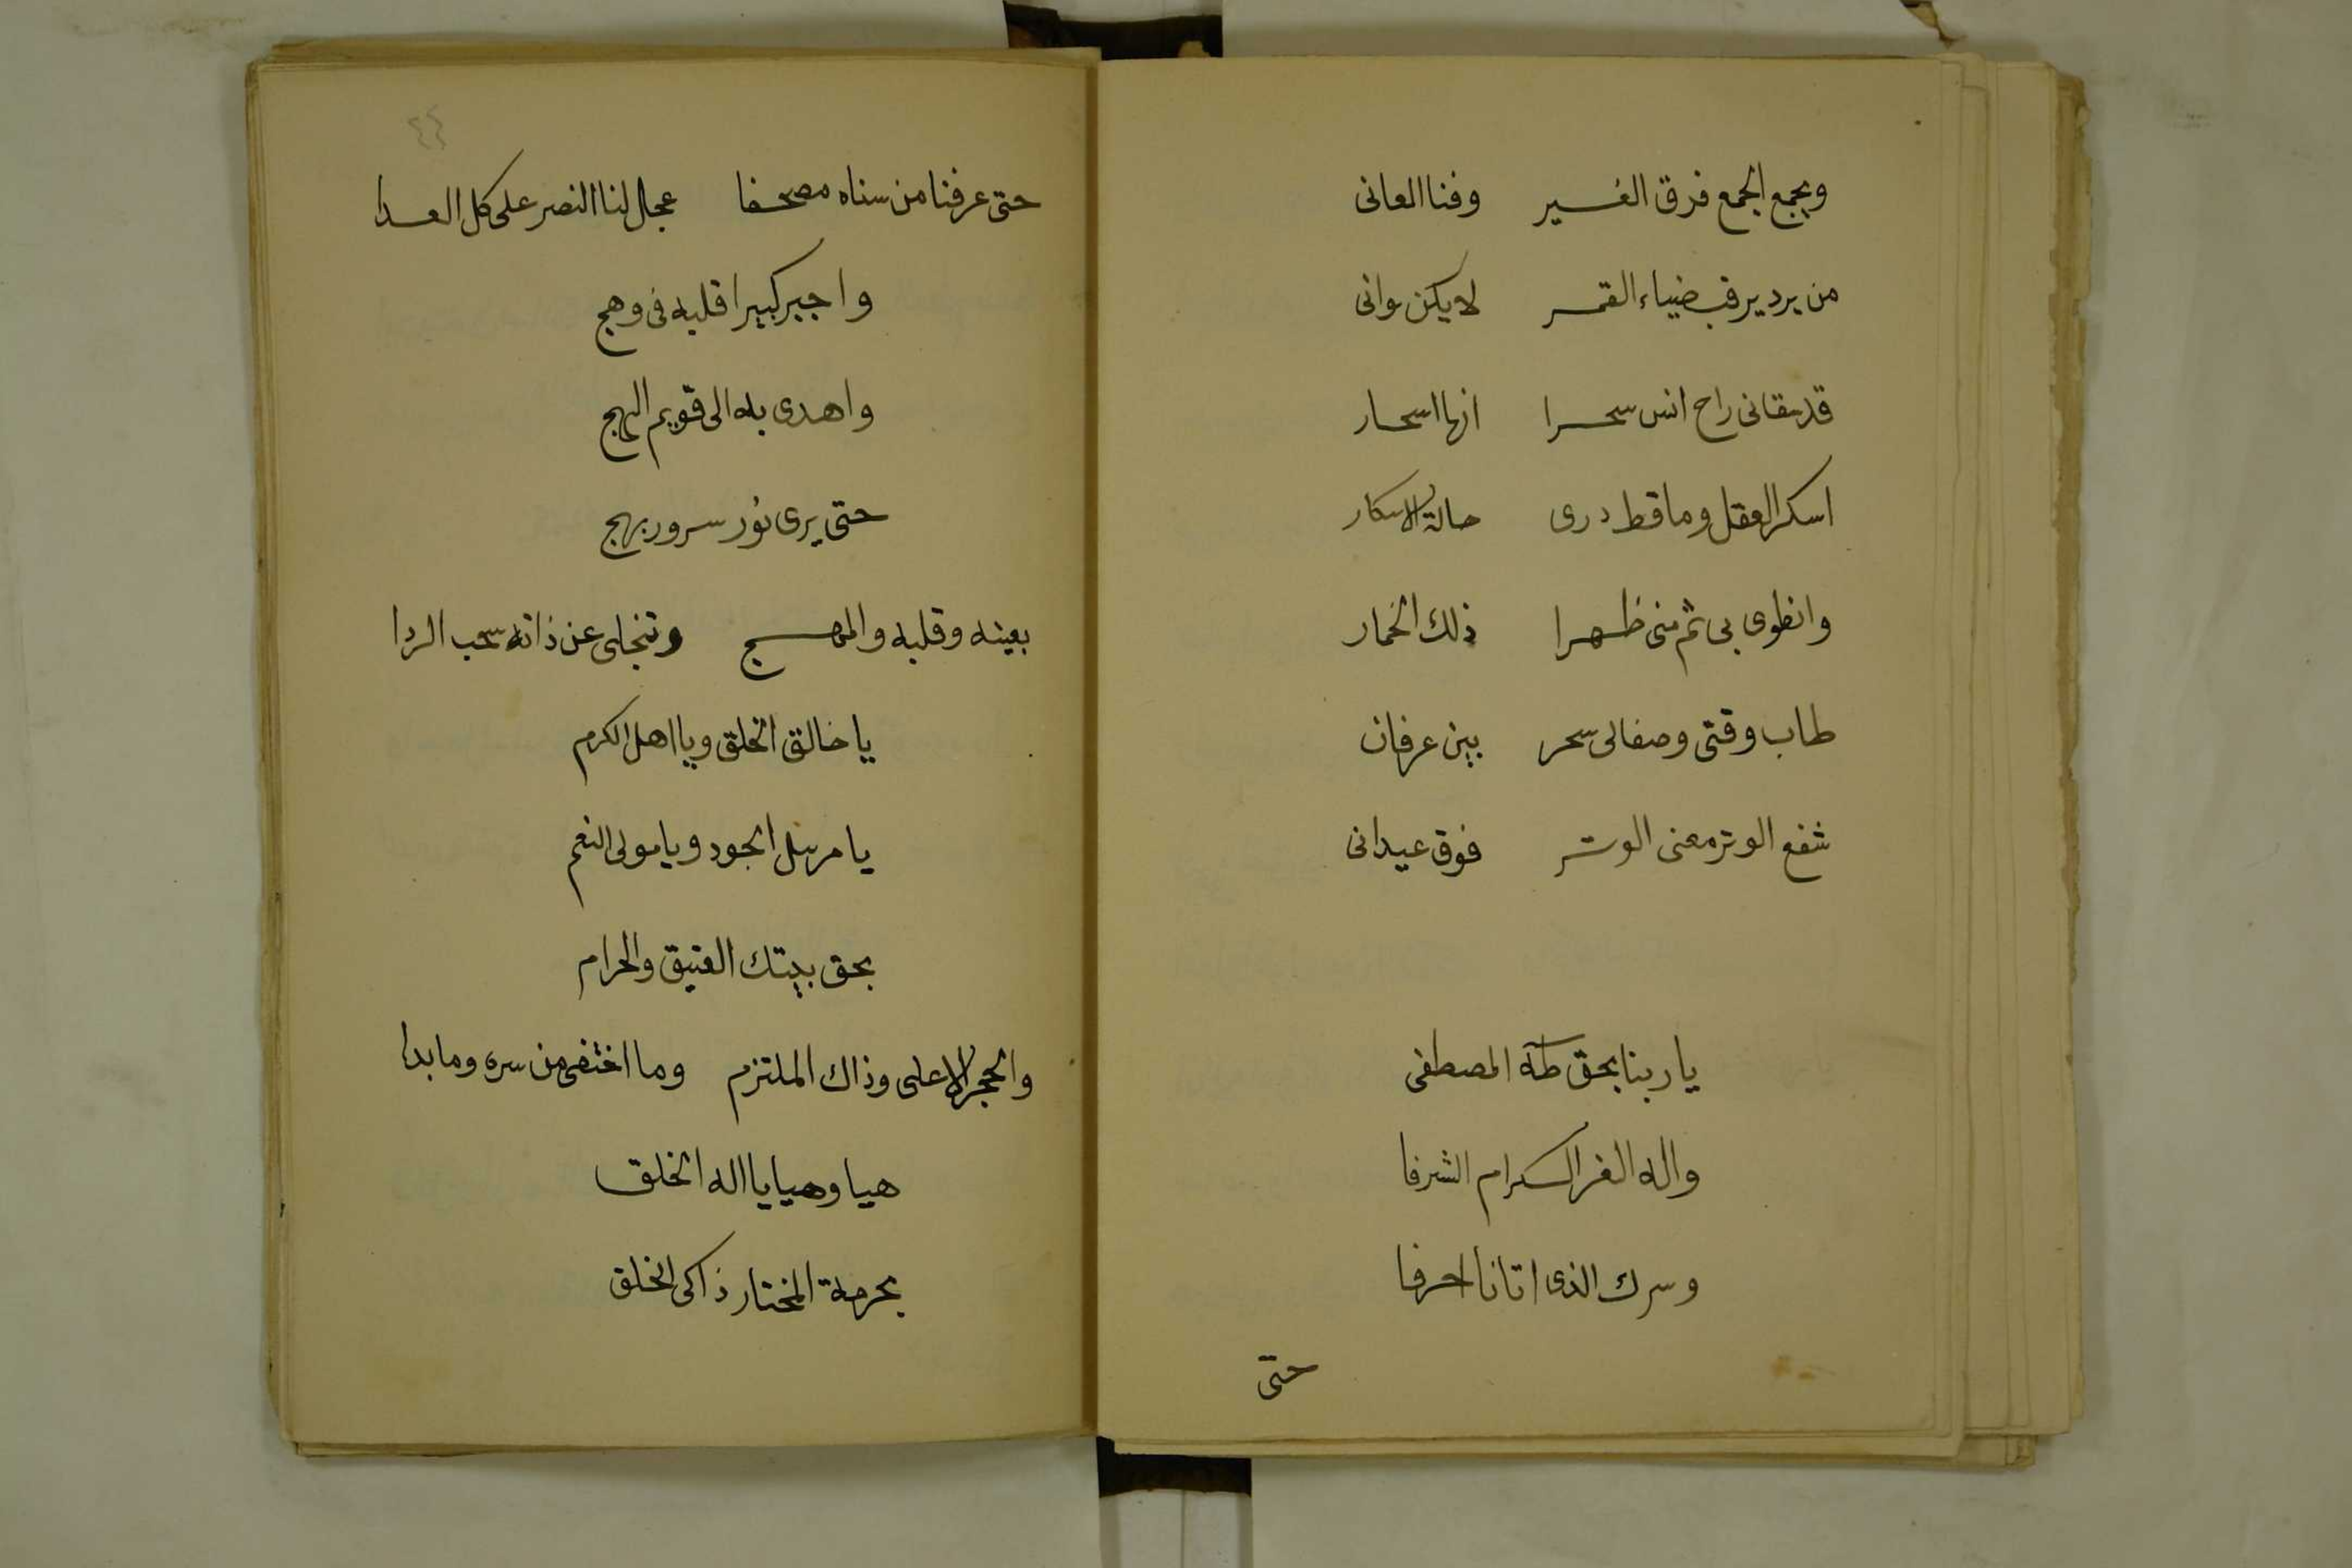 ويجمع الجمع فرق الغير وفنا المعانى
من يرد يرقب ضياء القمر لا يكن وانى
قد سقانى راح انس سحرا انها اسحار
اسكر العقل وما قط درى حالة الاسكار
وانطوى بى ثم منى ظهرا ذلك الخمار
طاب وقتى وصفا لى سحر بين عرفان
شفع الوتر معنى الوتر فوق عيدانى
يا ربنا بحق طه المصطفى
واله الغر الكرام الشرفا
وسرك الذى اتانا احرفا
حتى
٤٤
حتى عرفنا من سناه مصحفا عجل لنا النصر على كل العدا
واجبر كبيرا قلبه فى وهج
واهدى به الى قويم النهج
حتى يرى نور سرور بهج
بعينه وقلبه والمهج وتنجلى عن ذاته سحب الردا
يا خالق الخلق ويا اهل الكرم
يا مرسل الجود ويا مولى النعم
بحق بيتك العتيق والحرام
والحجر الاعلى وذاك الملتزم وما اختفى من سره وما بدا
هيا وهيا يا اله الخلق
بحرمة المختار زاكى الخلق